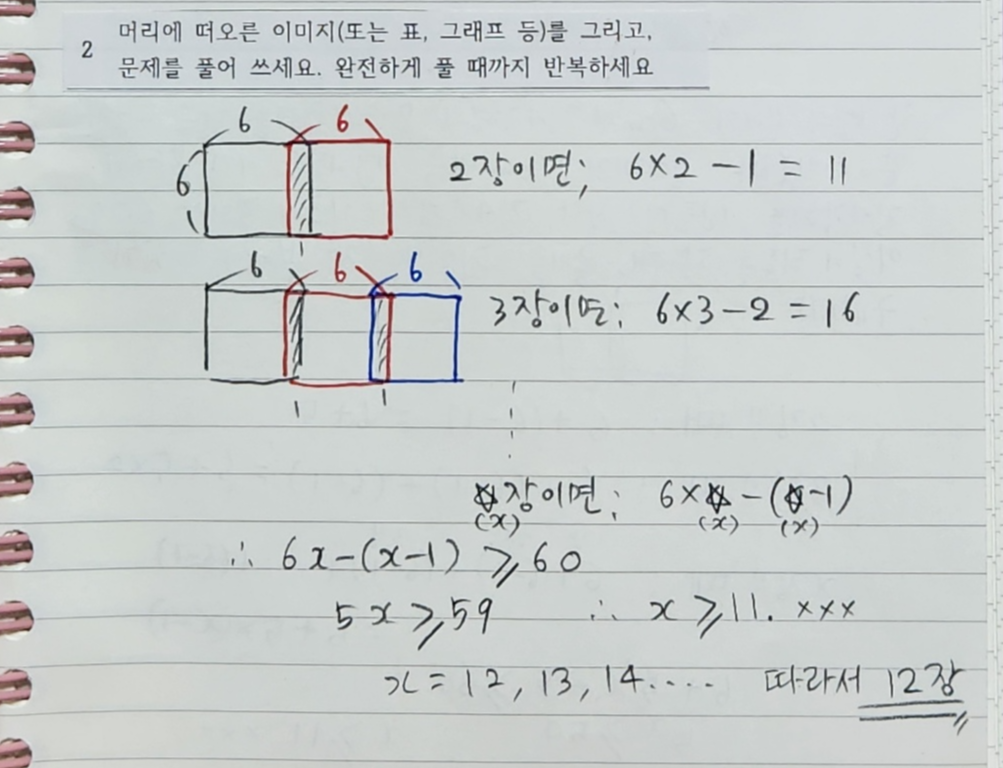 2
머리에 떠오른 이미지(또는 표, 그래프 등)를 그리고,
문제를 풀어 쓰세요. 완전하게 풀 때까지 반복하세요
6 6
6
2장이면; 6×2 -1 = 11
1
6 6 6
3장이면; 6×3-2 = 16
1 1
☆장이면; 6×☆-(☆-1)
(x) (x) (x)
∴ 6x-(x-1) ≥ 60
5x ≥ 59 ∴ x ≥ 11. ×××
x = 12, 13, 14.... 따라서 12장